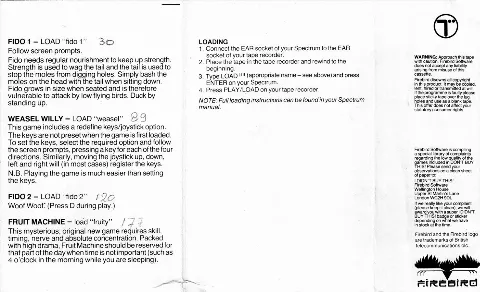 FIDO 1 – LOAD "fido 1" 30
Follow screen prompts.
Fido needs regular nourishment to keep up strength.
Strength is used to wag the tail and the tail is used to
stop the moles from digging holes. Simply bash the
moles on the head with the tail when sitting down.
Fido grows in size when seated and is therefore
vulnerable to attack by low flying birds. Duck by
standing up.
WEASEL WILLY – LOAD "weasel" 89
This game includes a redefine keys/joystick option.
The keys are not preset when the game is first loaded.
To set the keys, select the required option and follow
the screen prompts, pressing a key for each of the four
directions. Similarly, moving the joystick up, down,
left and right will (in most cases) register the keys.
N.B. Playing the game is much easier than setting
the keys.
FIDO 2 – LOAD "fido 2" 120
Woof Woof! (Press D during play.)
FRUIT MACHINE – load "fruity"
This mysterious, original new game requires skill,
timing, nerve and absolute concentration. Packed
with high drama, Fruit Machine should be reserved for
that part of the day when time is not important (such as
4 o'clock in the morning while you are sleeping).
LOADING
1. Connect the EAR socket of your Spectrum to the EAR
socket of your tape recorder.
2. Place the tape in the tape recorder and rewind to the
beginning.
3. Type LOAD "" (appropriate name – see above) and press
ENTER on your Spectrum.
4. Press PLAY/LOAD on your tape recorder.
NOTE: Full loading instructions can be found in your Spectrum
manual.
WARNING: Approach this tape
with caution. Firebird Software
does not accept any liability
arising from misuse of this
cassette.
Firebird and the Firebird logo
are trademarks of British
Telecommunications plc.
FIREBIRD